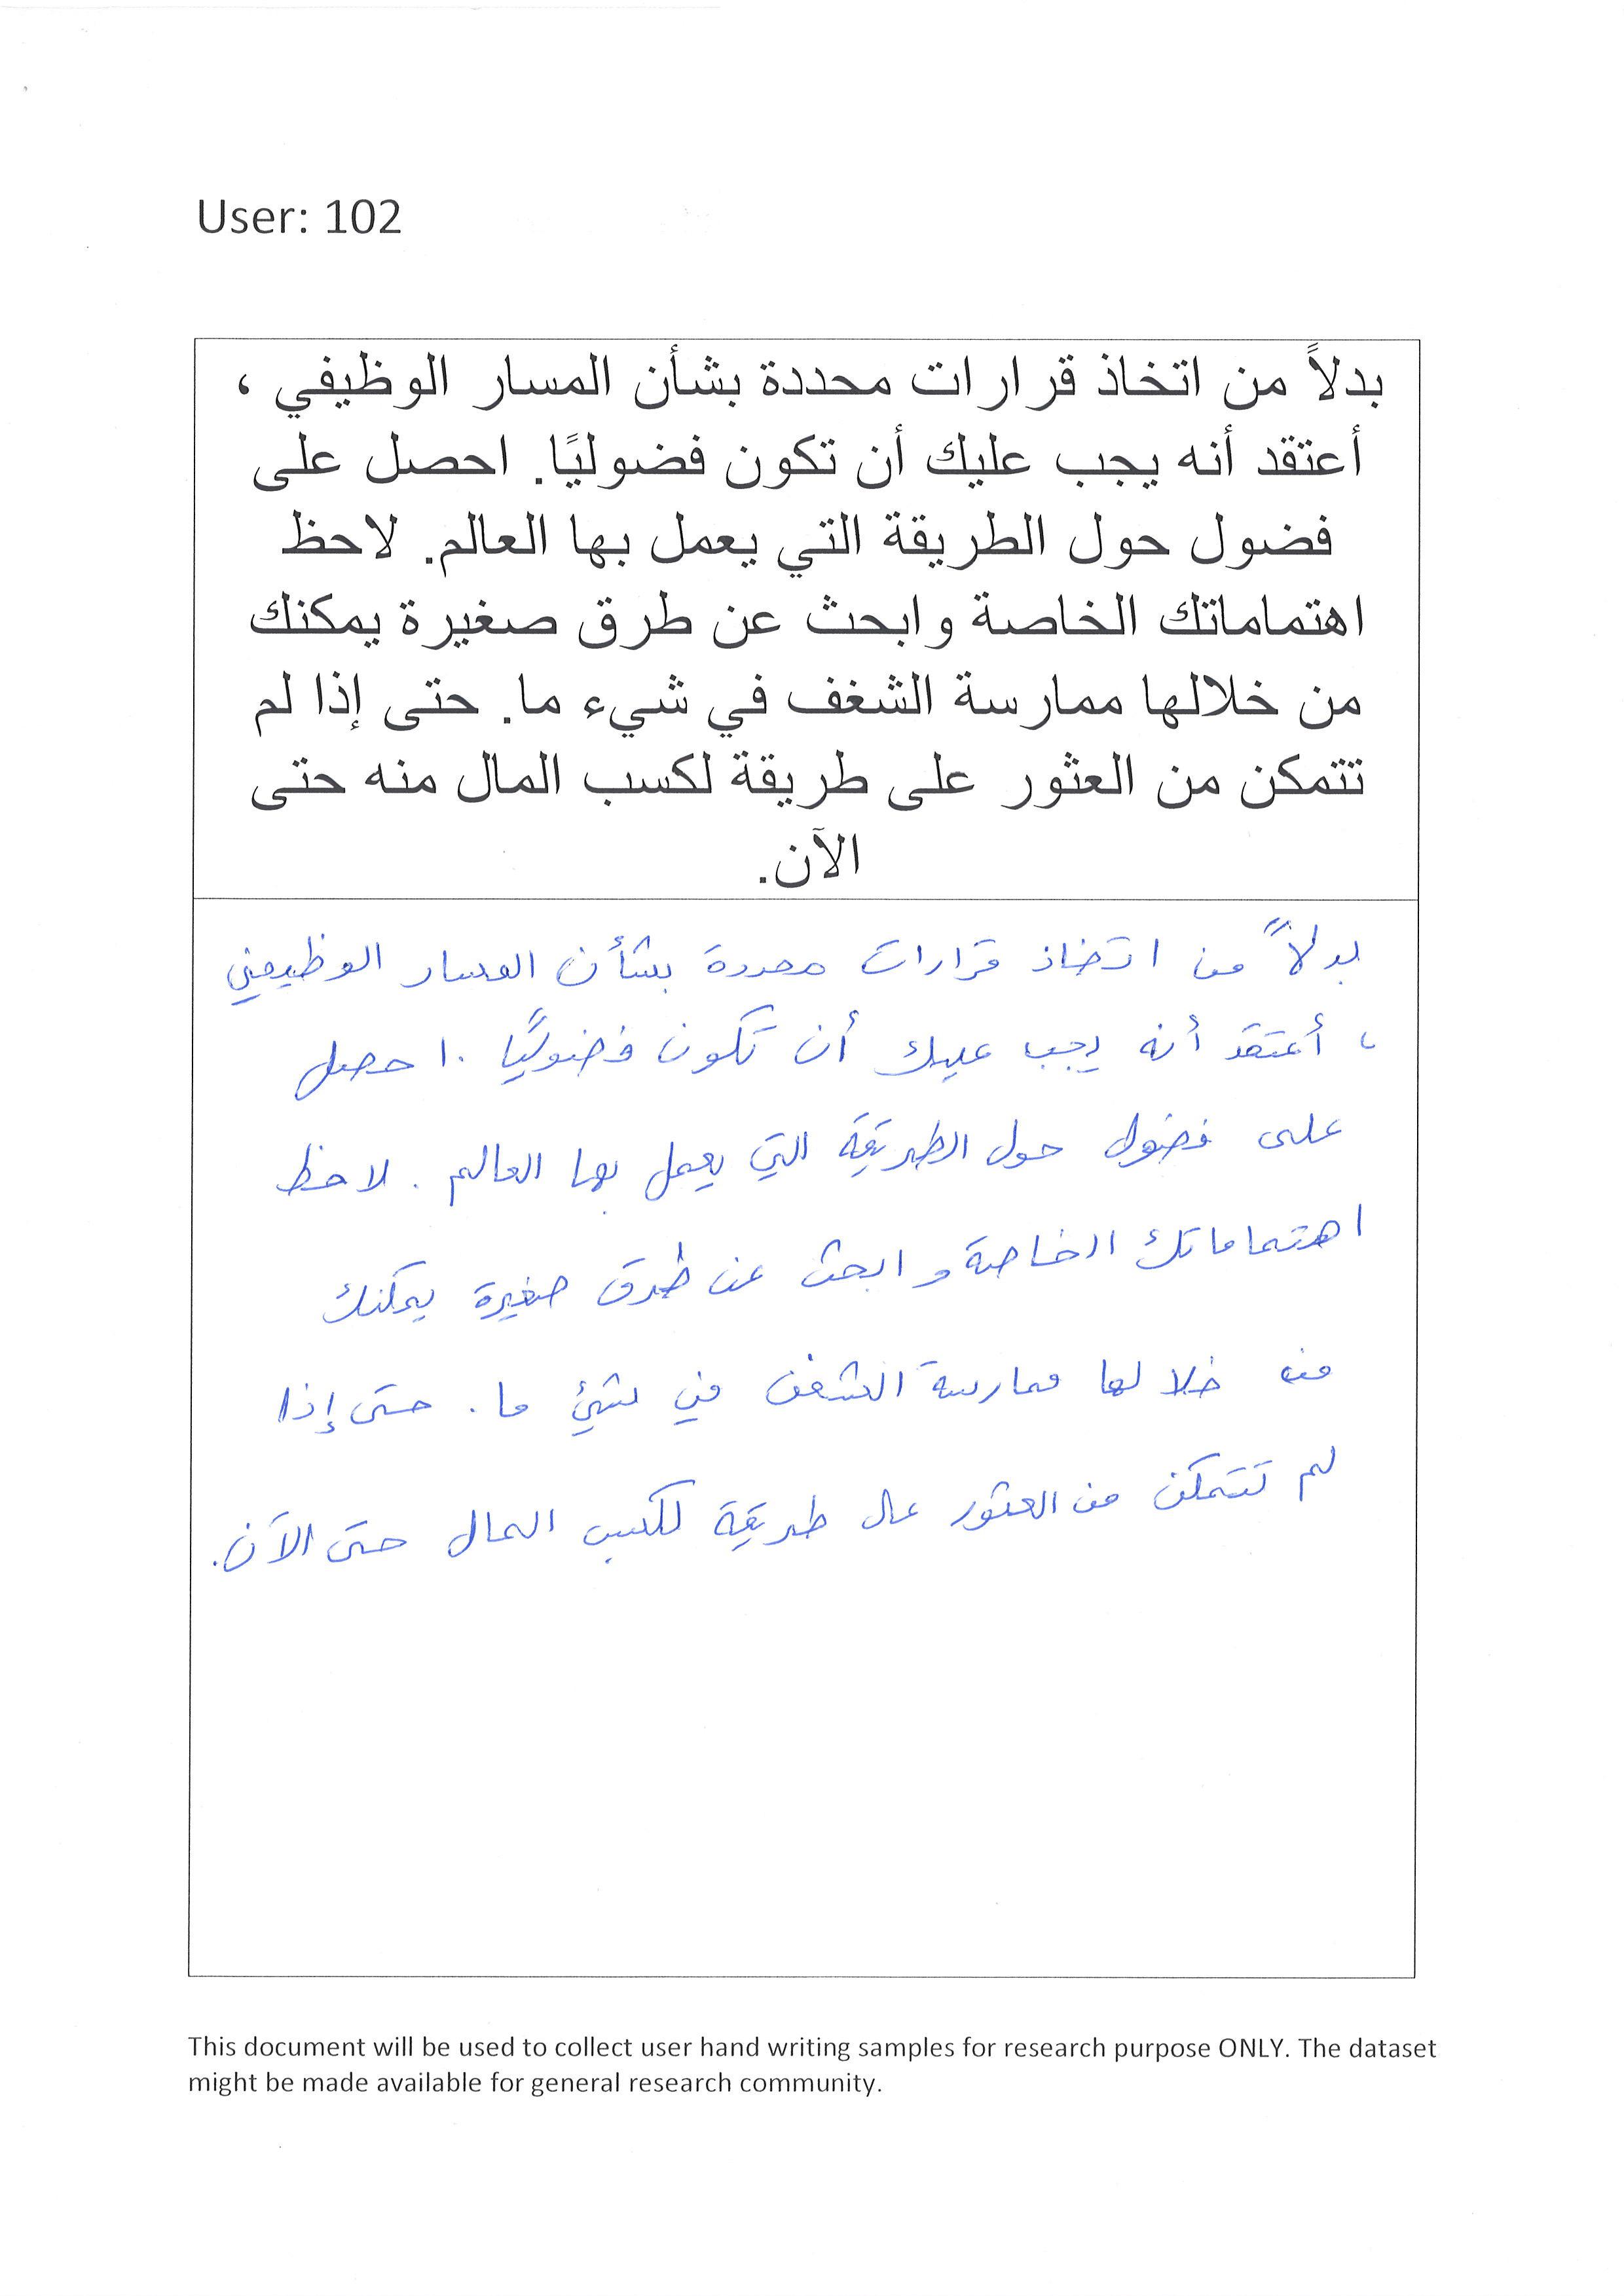 User: 102
بدلاً من اتخاذ قرارات محددة بشأن المسار الوظيفي ،
أعتقد أنه يجب عليك أن تكون فضوليًا. احصل على
فضول حول الطريقة التي يعمل بها العالم. لاحظ
اهتماماتك الخاصة وابحث عن طرق صغيرة يمكنك
من خلالها ممارسة الشغف في شيء ما. حتى إذا لم
تتمكن من العثور على طريقة لكسب المال منه حتى
الآن.
بدلاً من اتخاذ قرارات محددة بشأن المسار الوظيفي
، أعتقد أنه يجب عليك أن تكون فضوليًا . احصل
على فضول حول الطريقة التي يعمل بها العالم . لاحظ
اهتماماتك الخاصة و ابحث عن طرق صغيرة يمكنك
من خلالها ممارسة الشغف في شيئ ما . حتى إذا
لم تتمكن من العثور عال طريقة لكسب المال حتى الآن.
This document will be used to collect user hand writing samples for research purpose ONLY. The dataset
might be made available for general research community.